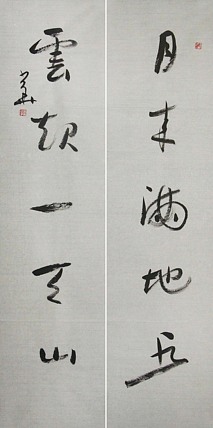 月来滿地水
雲起一天山